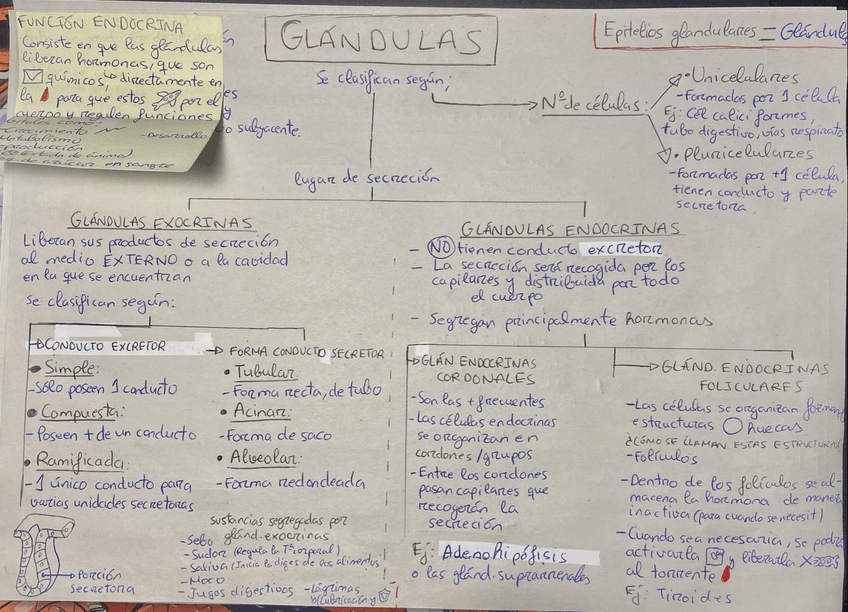 FUNCIÓN ENDOCRINA
Consiste en que las glándulas
liberan hormonas, que son
químicos, directamente en
la para que estos por el
cuerpo y regulen funciones
Crecimiento
-Desarrollo
Metabolismo
o subyacente.
GLÁNDULAS
Epitelios glandulares = Glándul
Se clasifican según;
Nº de células:
• Unicelulares
-Formadas por 1 célula
Ej: Cél caliciformes,
tubo digestivo, vías respirato
• Pluricelulares
-Formadas por +1 célula,
tienen conducto y parte
secretora
lugar de secreción
GLÁNDULAS EXOCRINAS
Liberan sus productos de secreción
al medio EXTERNO o a la cavidad
en la que se encuentran
Se clasifican según:
CONDUCTO EXCRETOR
• Simple:
-Sólo poseen 1 conducto
• Compuesta:
-Poseen + de un conducto
• Ramificada:
-1 único conducto para
varias unidades secretoras
Porción
secretora
FORMA CONDUCTO SECRETOR
• Tubular:
-Forma recta, de tubo
• Acinar:
-Forma de saco
• Alveolar:
-Forma redondeada
sustancias segregadas por
gland. exocrinas
-Sebo
-Sudor (Regula la Tª corporal)
-Saliva (Inicia la diges de los alimentos
-Moco
-Jugos digestivos
-Lágrimas
GLÁNDULAS ENDOCRINAS
- NO tienen conducto excretor
- La secreción será recogida por los
capilares y distribuida por todo
el cuerpo
- Segregan principalmente hormonas
GLÁN. ENDOCRINAS
CORDONALES
-Son las + frecuentes
-Las células endocrinas
se organizan en
cordones/grupos
-Entre los cordones
pasan capilares que
recogerán la
secreción
Ej: Adenohipófisis
o las gland. suprarrenales
GLÁND. ENDOCRINAS
FOLICULARES
-Las células se organizan forman
estructuras huecas
¿CÓMO SE LLAMAN ESTAS ESTRUCTURAS
-Folículos
-Dentro de los folículos se al-
macena la hormona de manera
inactiva (para cuando se necesit)
-Cuando sea necesaria, se podrá
activarla y liberarla
al torrente
Ej: Tiroides